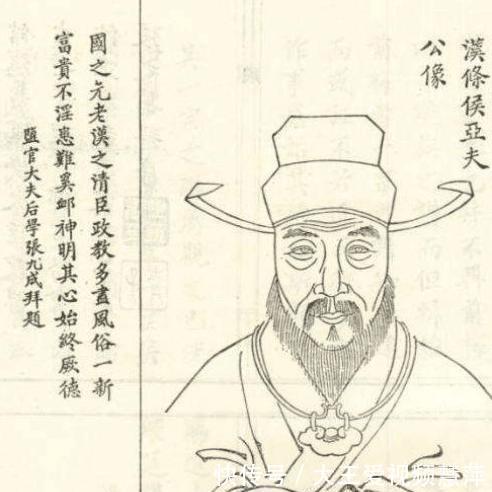 漢條侯亞夫
公像
國之元老漢之清臣政教多盡風俗一新
富貴不淫患難奚卹神明其心始終厥德
鹽官大夫后學張九成拜題
快传号／大王爱视频慧萍